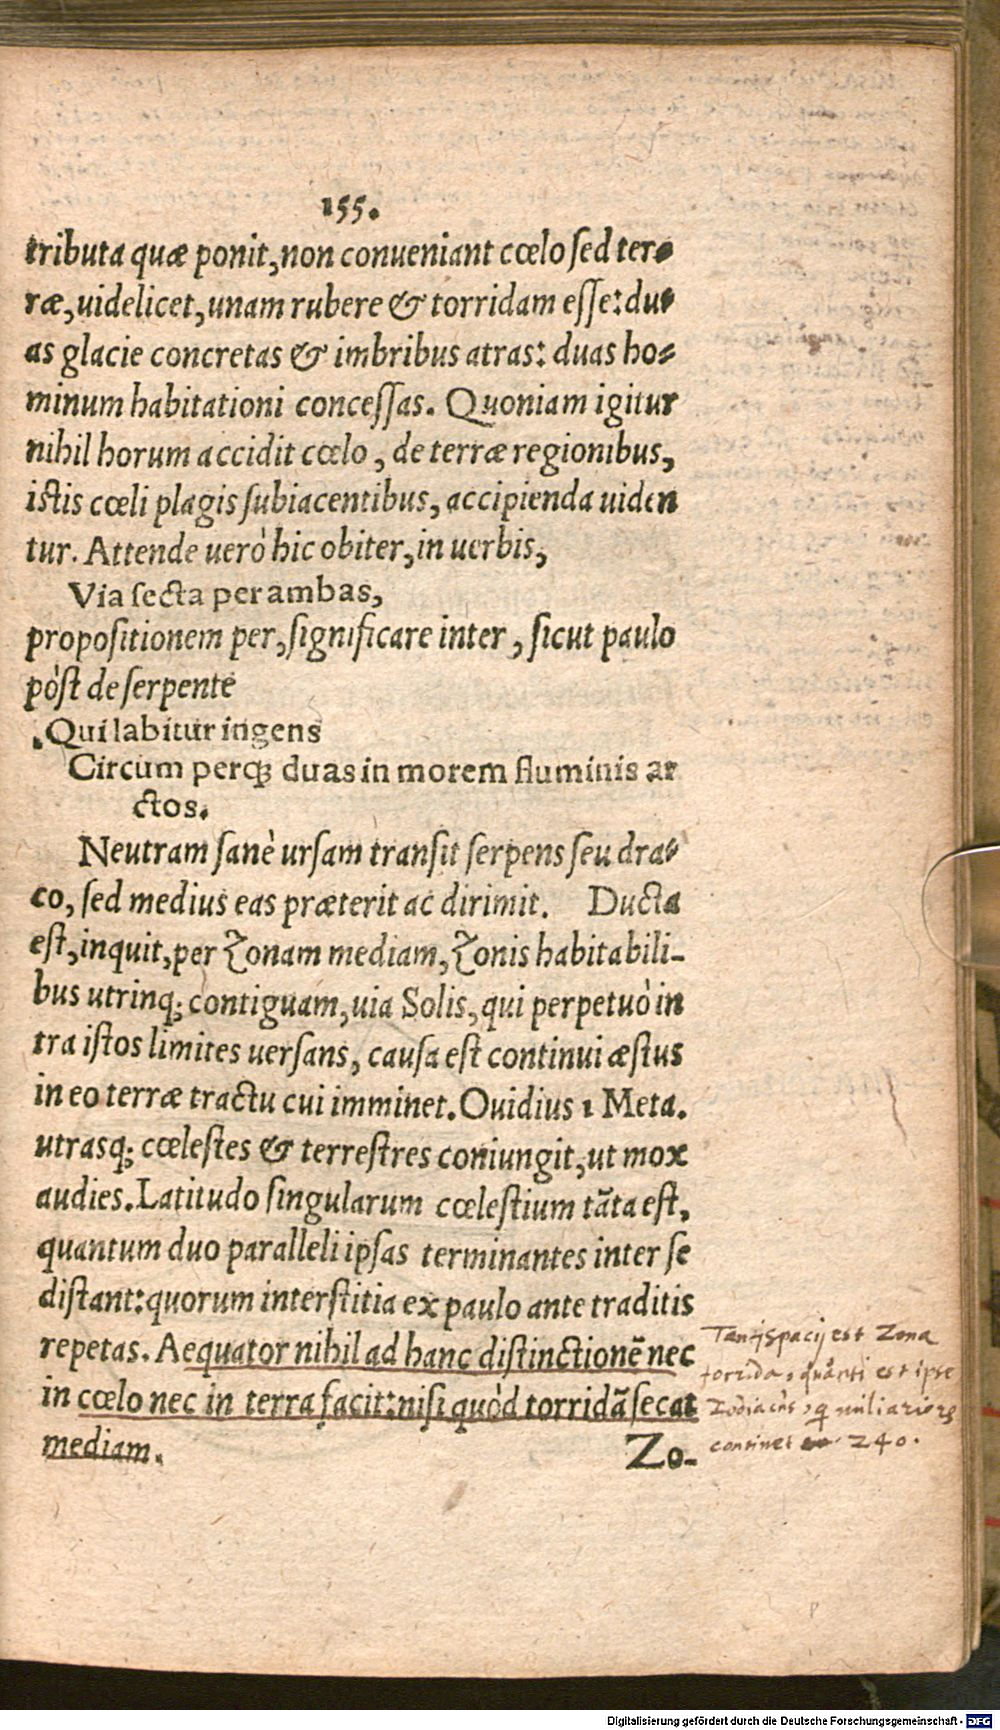 155.
tributa quæ ponit, non conueniant cœlo sed ter-
ræ, uidelicet, unam rubere & torridam esse: du-
as glacie concretas & imbribus atras: duas ho-
minum habitationi concessas. Quoniam igitur
nihil horum accidit cœlo, de terræ regionibus,
istis cœli plagis subiacentibus, accipienda uiden
tur. Attende uerò hic obiter, in uerbis,
Via secta per ambas,
propositionem per, significare inter, sicut paulo
pòst de serpente
Qui labitur ingens
Circum perq; duas in morem fluminis ar
ctos.
Neutram sanè ursam transit serpens seu dra-
co, sed medius eas præterit ac dirimit. Ducta
est, inquit, per Zonam mediam, Zonis habitabili-
bus utrinq; contiguam, uia Solis, qui perpetuò in
tra istos limites uersans, causa est continui æstus
in eo terræ tractu cui imminet. Ouidius 1 Meta.
utrasq; cœlestes & terrestres coniungit, ut mox
audies. Latitudo singularum cœlestium tãta est,
quantum duo paralleli ipsas terminantes inter se
distant: quorum interstitia ex paulo ante traditis
repetas. Aequator nihil ad hanc distinctionẽ nec
in cœlo nec in terra facit: nisi quòd torridã secat
mediam.
Zo-
Tanti spacij est Zona
torrida, quãti est ipse
Zodiacus, q miliaria
continet 240.
Digitalisierung gefördert durch die Deutsche Forschungsgemeinschaft - DFG